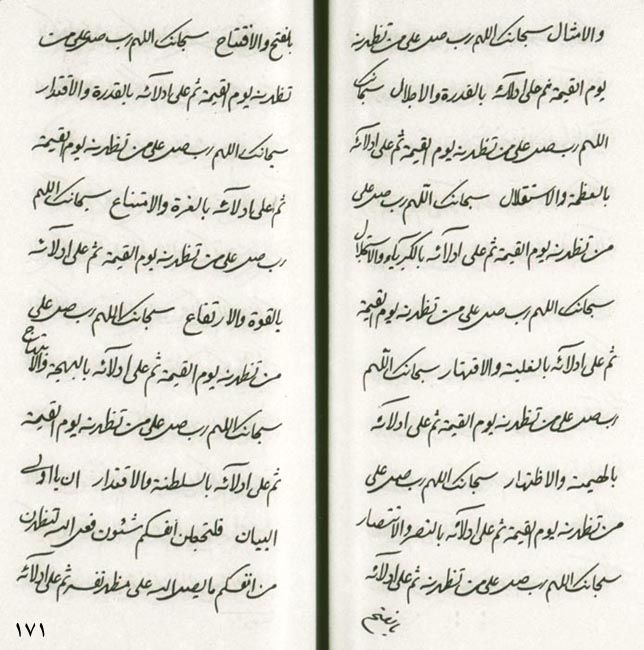 والامثال سبحانک اللهم رب صل علی من تظهرنه
یوم القیمة ثم علی ادلائه بالقدرة والاجلال سبحانک
اللهم رب صل علی من تظهرنه یوم القیمة ثم علی ادلائه
بالعظمة والاستقلال سبحانک اللهم رب صل علی
من تظهرنه یوم القیمة ثم علی ادلائه بالکبریاء والاستجلال
سبحانک اللهم رب صل علی من تظهرنه یوم القیمة
ثم علی ادلائه بالغلبة والاقتهار سبحانک اللهم
رب صل علی من تظهرنه یوم القیمة ثم علی ادلائه
بالهیمنة والاظتهار سبحانک اللهم رب صل علی
من تظهرنه یوم القیمة ثم علی ادلائه بالنصر والانتصار
سبحانک اللهم رب صل علی من تظهرنه ثم علی ادلائه
بالفتح
بالفتح والافتتاح سبحانک اللهم رب صل علی من
تظهرنه یوم القیمة ثم علی ادلائه بالقدرة والاقتدار
سبحانک اللهم رب صل علی من تظهرنه یوم القیمة
ثم علی ادلائه بالعزة والامتناع سبحانک اللهم
رب صل علی من تظهرنه یوم القیمة ثم علی ادلائه
بالقوة والارتفاع سبحانک اللهم رب صل علی
من تظهرنه یوم القیمة ثم علی ادلائه بالبهجة والابتهاج
سبحانک اللهم رب صل علی من تظهرنه یوم القیمة
ثم علی ادلائه بالسلطنة والاقتدار ان یا اولی
البیان فلتجعلن انفسکم شئون فعل الله لتظهرن
من انفسکم ما یصل الله علی مظهر نفسه ثم علی ادلائه
۱۷۱